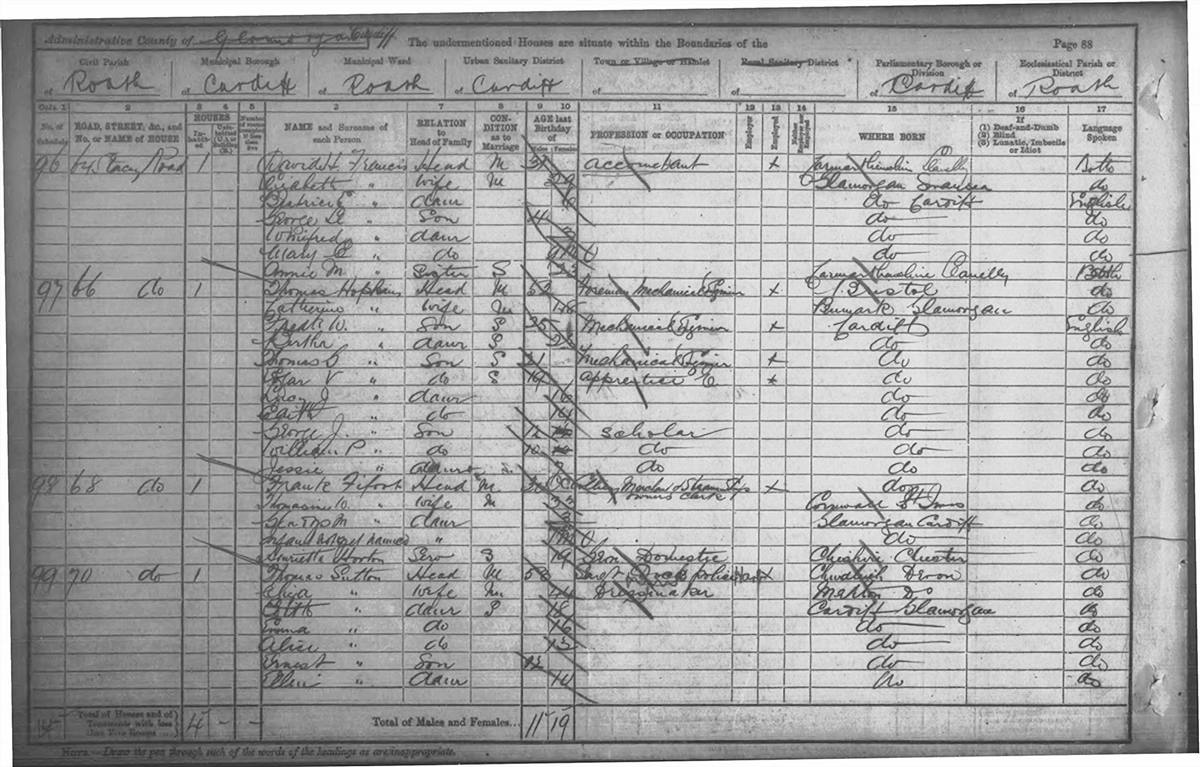 Administrative County of Glamorgan Cardiff The undermentioned Houses are situate within the Boundaries of the Page 88
Civil Parish Municipal Borough Municipal Ward Urban Sanitary District Town or Village or Hamlet Rural Sanitary District Parliamentary Borough or Division Ecclesiastical Parish or District
of Roath of Cardiff of Roath of Cardiff of of of Cardiff of Roath
Cols. 1 2 3 4 5 2 7 8 9 10 11 12 13 14 15 16 17
No. of Schedule ROAD, STREET, &c., and No. or NAME of HOUSE HOUSES NAME and Surname of each Person RELATION to Head of Family CONDITION as to Marriage AGE last Birthday of PROFESSION or OCCUPATION Employer Employed WHERE BORN If (1) Deaf-and-Dumb (2) Blind (3) Lunatic, Imbecile or Idiot Language Spoken
96 64 Stacey Road 1 Francis Head M accountant x Carmarthenshire Llanelly Both
Elizabeth " wife M 29 Glamorgan Swansea do
Beatrice " daur 6 do Cardiff English
George " Son 4 do do
Winifred " daur do do
Mary E " do do do
Annie M " Sister S Carmarthenshire Llanelly Both
97 66 do 1 Thomas Hopkins Head M 52 Foreman Mechanical x Bristol do
Catherine " wife M 48 Penmark Glamorgan do
Fredk W. " Son S 25 Mechanical x Cardiff English
Bertha " daur S do do
Thomas G " Son S 21 Mechanical x do do
Edgar V " do S 19 apprentice x do do
Lucy J " daur 16 do do
Edith " do 14 do do
George J. " Son 12 scholar do do
William P " do 10 do do do
Jessie " daur do do do
98 68 do 1 Frank Head M owners clerk x do do
Thomasine " wife M Cornwall St Ives do
Gladys M " daur Glamorgan Cardiff do
Infant not yet named " do do
Henrietta Horton Serv S 19 Domestic Cheshire Chester do
99 70 do 1 Thomas Sutton Head M Dock police x Chudleigh Devon do
Eliza " wife M 44 Dressmaker do
Edith " daur S 18 Cardiff Glamorgan do
Emma " do 16 do do
Alice " do 13 do do
Ernest " Son 12 do do
Ellen " daur 10 do do
Total of Houses and of Tenements with less than Five Rooms 4 - - Total of Males and Females... 11 19
NOTE.—Draw the pen through such of the words of the headings as are inappropriate.